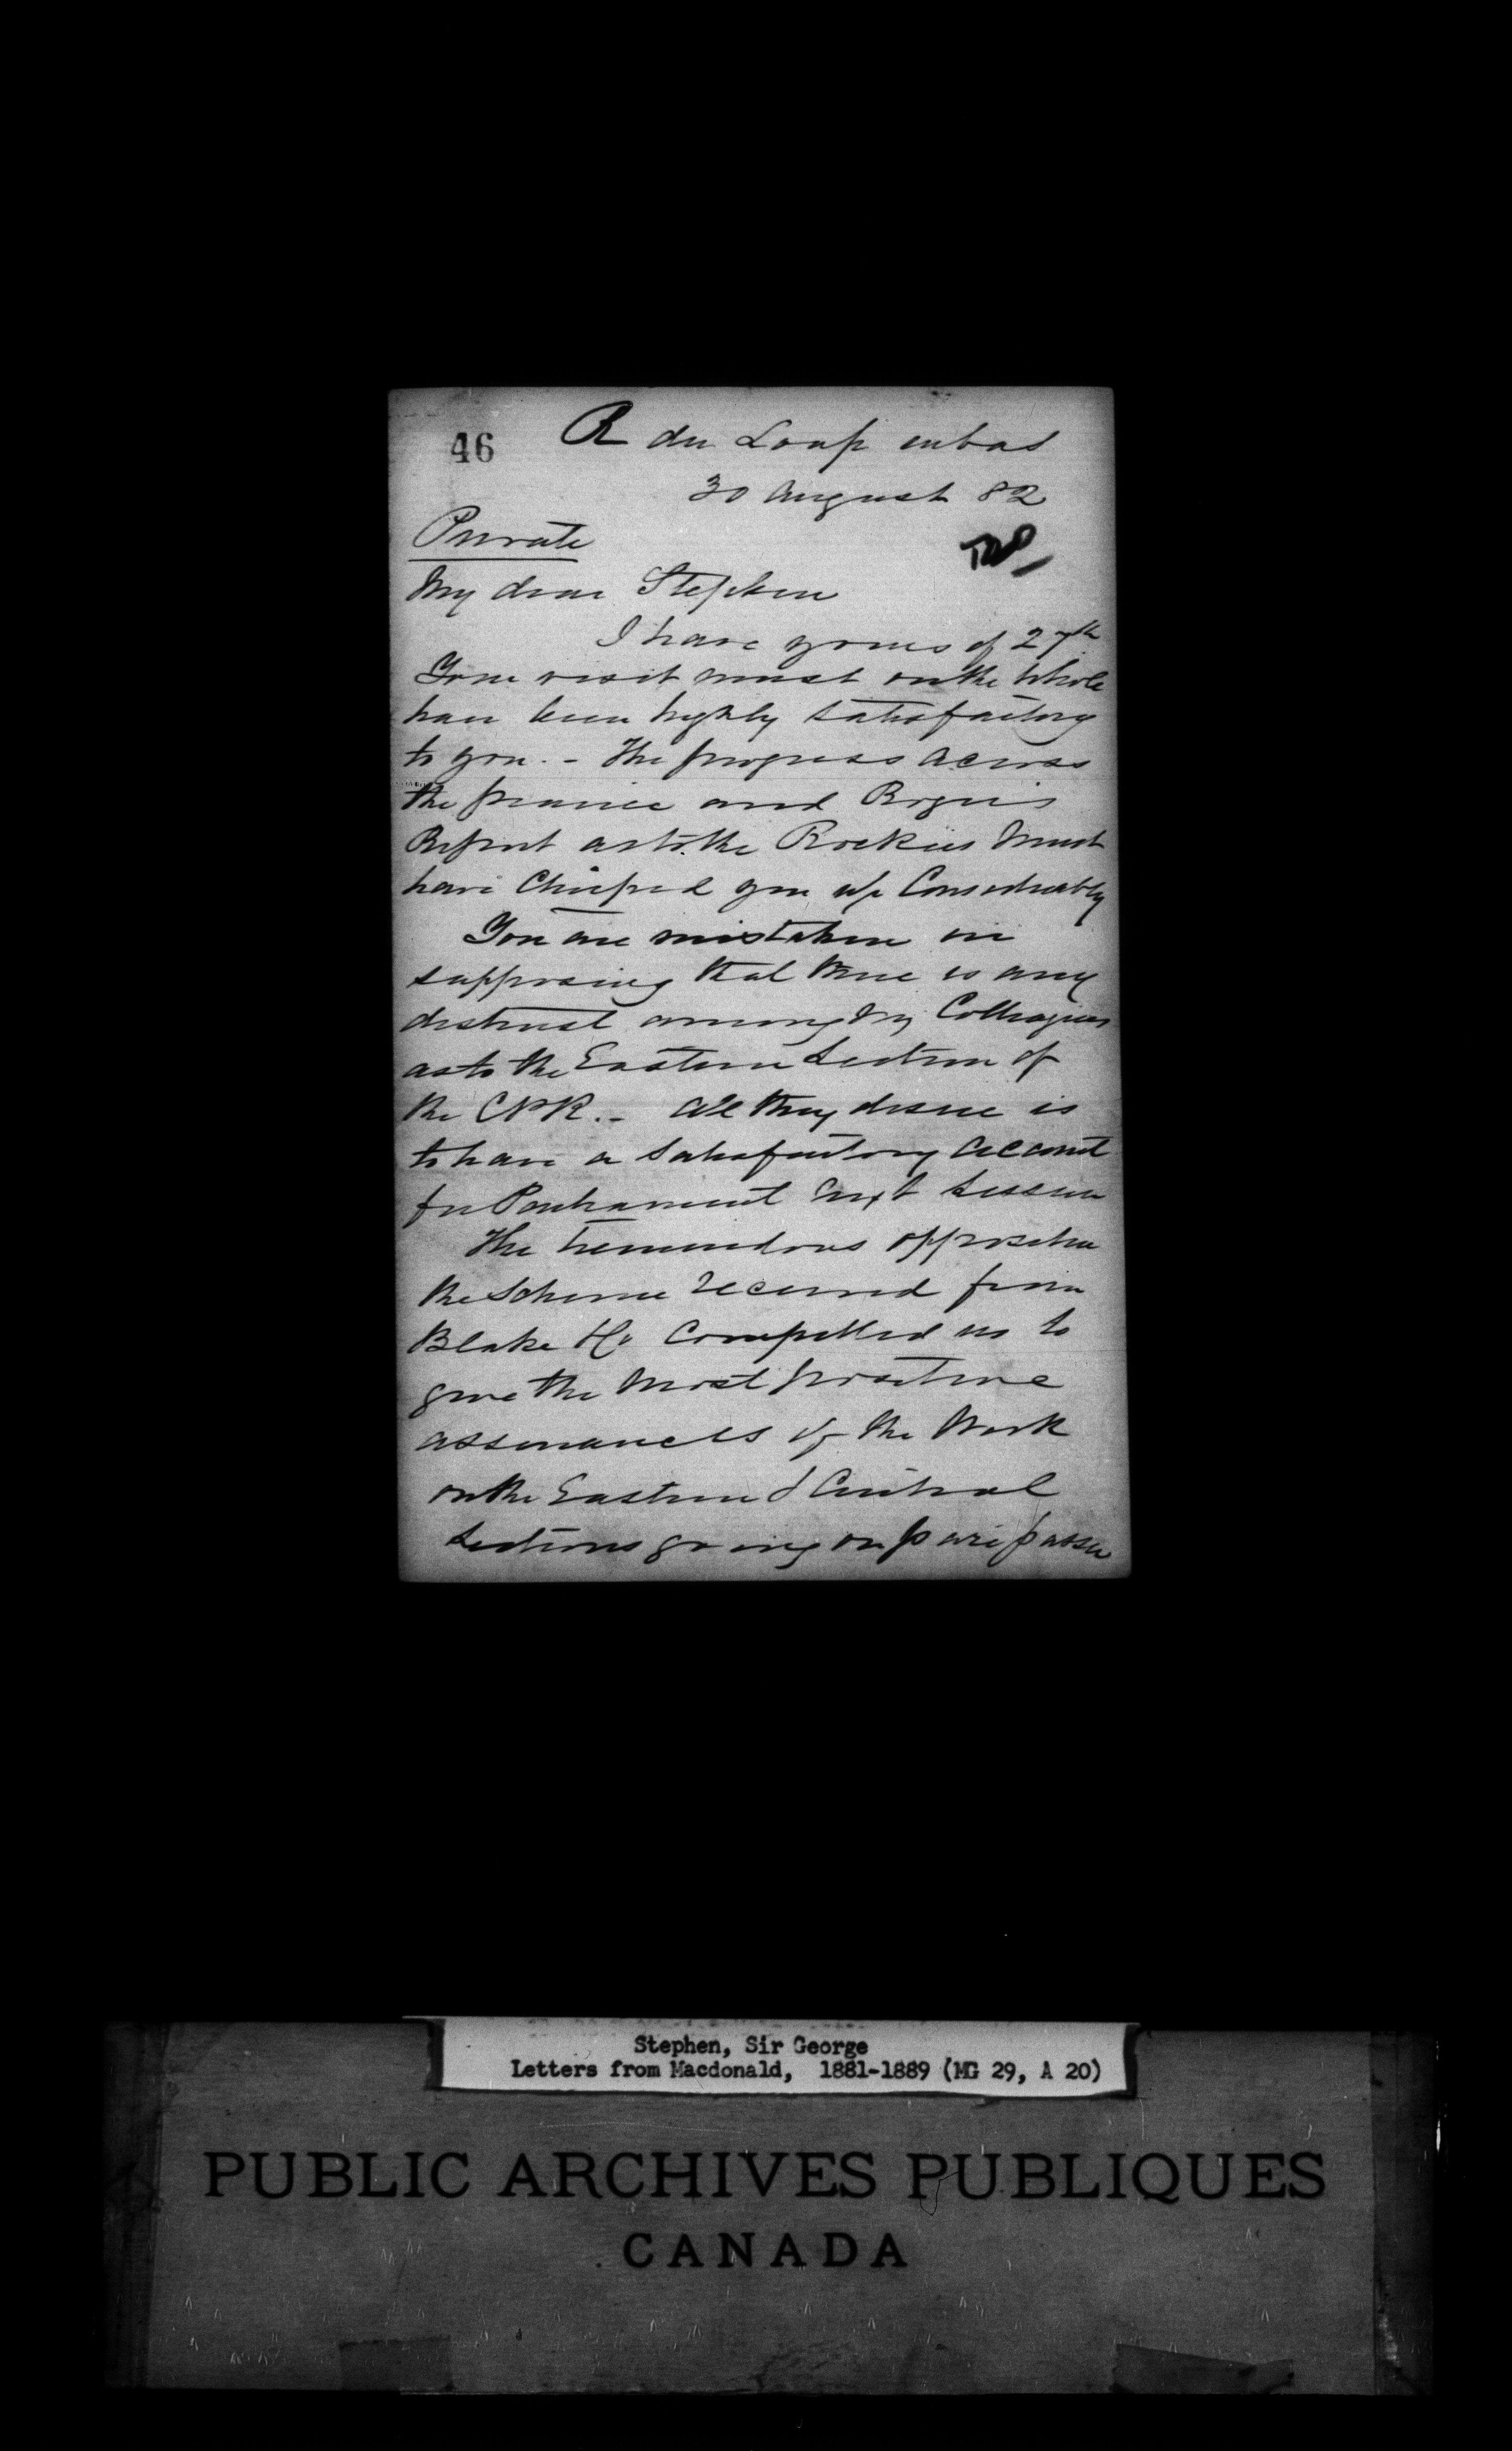 46
R du Loup en bas
30 August 82
Private
My dear Stephen
I have yours of 27th
Your visit must on the whole
have been highly satisfactory
to you. - The progress across
the prairie and Rogers
Report as to the Rockies must
have chirped you up Considerably
You are mistaken in
supposing that there is any
distrust among my Colleagues
as to the Eastern Section of
the CPR. - All they desire is
to have a satisfactory account
for Parliament next Session
The tremendous opposition
the scheme received from
Blake &c Compelled us to
give the most positive
assurances of the Work
on the Eastern & Central
Sections going on pari passu
Stephen, Sir George
Letters from Macdonald, 1881-1889 (MG 29, A 20)
PUBLIC ARCHIVES PUBLIQUES
CANADA